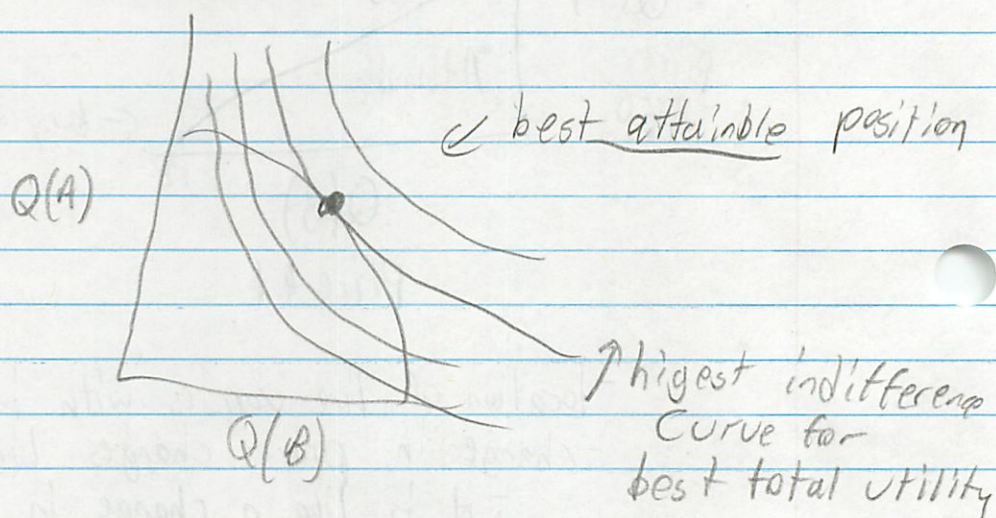 ↙ best attainble position
Q(A)
↑ higest indifference
Curve for
best total utility
Q(B)